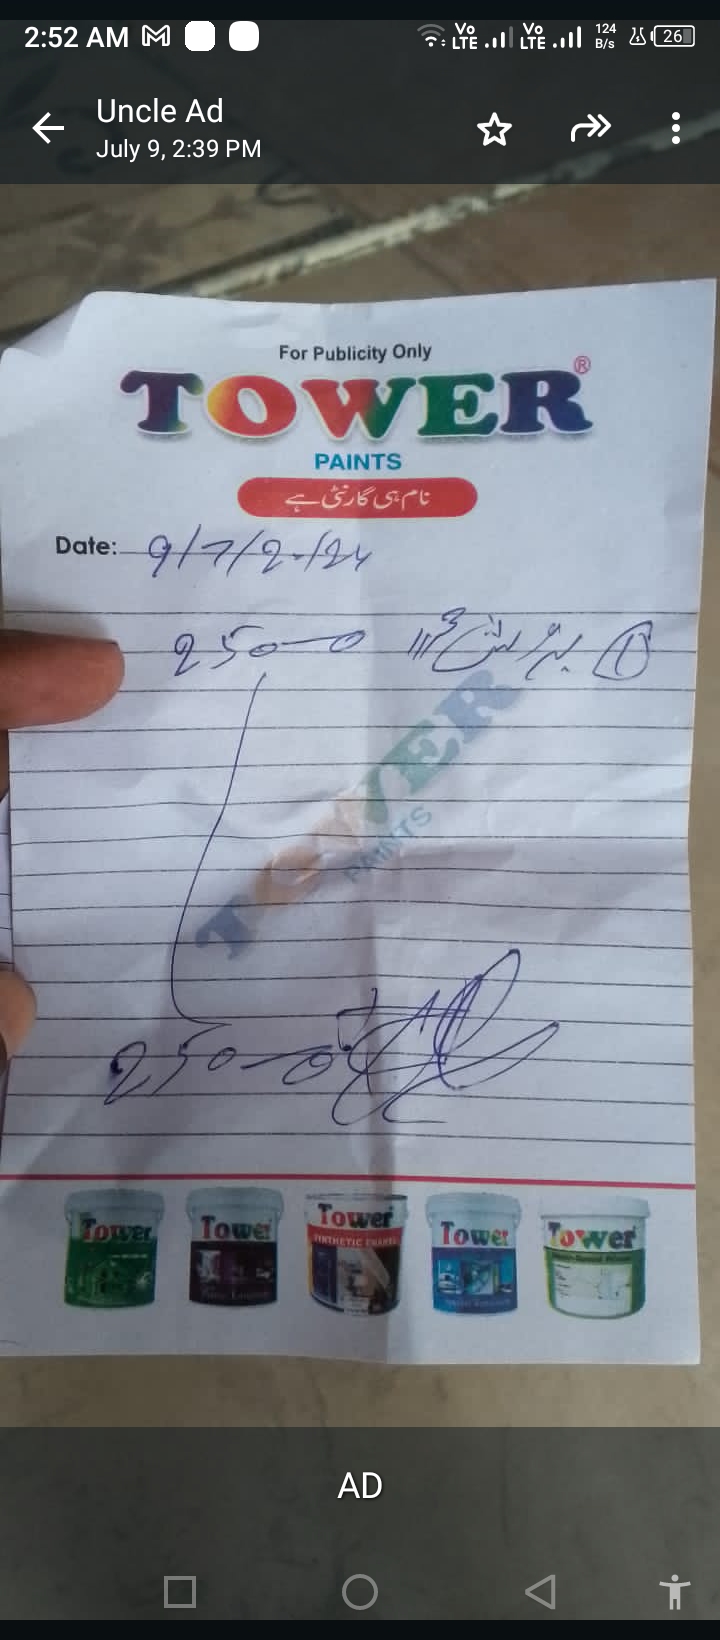 2:52 AM
Vo LTE Vo LTE 124 B/s 26
Uncle Ad
July 9, 2:39 PM
For Publicity Only
TOWER®
PAINTS
نام ہی گارنٹی ہے
Date: 9/7/2024
① برش 3"
250=0
TOWER
PAINTS
250=0
Tower
Tower
Tower
SYNTHETIC ENAMEL
Tower
Tower
AD